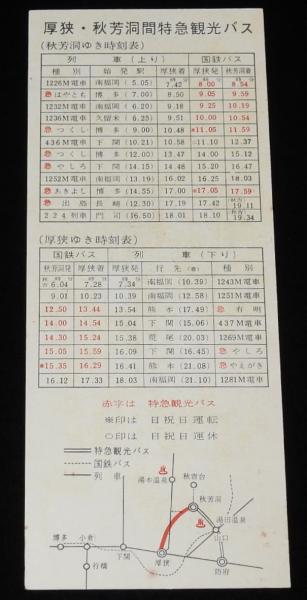 厚狭・秋芳洞間特急観光バス
(秋芳洞ゆき時刻表)
列 車 (上り) 国鉄バス
種別 始発駅 厚狭着 厚狭発 秋芳洞着
1226M電車 南福岡 (5.05) 7.42 8.00 8.54
急はやとも 博多 (8.50) 7.00 9.07 9.59
1232M電車 南福岡 (6.20) 9.18 9.25 10.19
1236M電車 久留米 (6.25) 9.51 10.00 10.54
急つくし 博多 (9.00) 10.48 ※11.05 11.59
436M電車 下関 (10.21) 10.58 11.10 12.37
急つくし 博多 (12.00) 13.47 14.00 15.12
急やしろ 下関 (14.15) 14.48 15.20 16.47
1252M電車 南福岡 (13.19) 16.02 16.25 18.03
急あきよし 博多 (14.55) 17.00 ※17.05 17.59
急出島 長崎 (12.30) 17.19 17.42 19.11
224列車 門司 (16.50) 18.01 18.10 19.34
(厚狭ゆき時刻表)
国鉄バス 列 車 (下り)
秋芳洞発 厚狭着 厚狭発 行先(着) 種別
6.04 7.28 7.34 南福岡 (10.39) 1243M電車
9.01 10.23 10.39 南福岡 (12.58) 1251M電車
12.50 13.44 13.54 熊本 (17.49) 急有明
14.00 14.54 15.04 下関 (15.06) 437M電車
14.30 15.24 15.38 荒尾 (20.03) 1269M電車
15.05 15.59 16.09 下関 (16.45) 急やしろ
※15.35 16.29 16.41 熊本 (21.08) 急やえがき
16.12 17.33 18.03 南福岡 (21.10) 1281M電車
赤字は 特急観光バス
※印は 日祝日運転
○印は 日祝日運休
特急観光バス
国鉄バス
列車
湯本温泉
秋吉台
秋芳洞
湯田温泉
山口
博多
小倉
下関
厚狭
防府
行橋